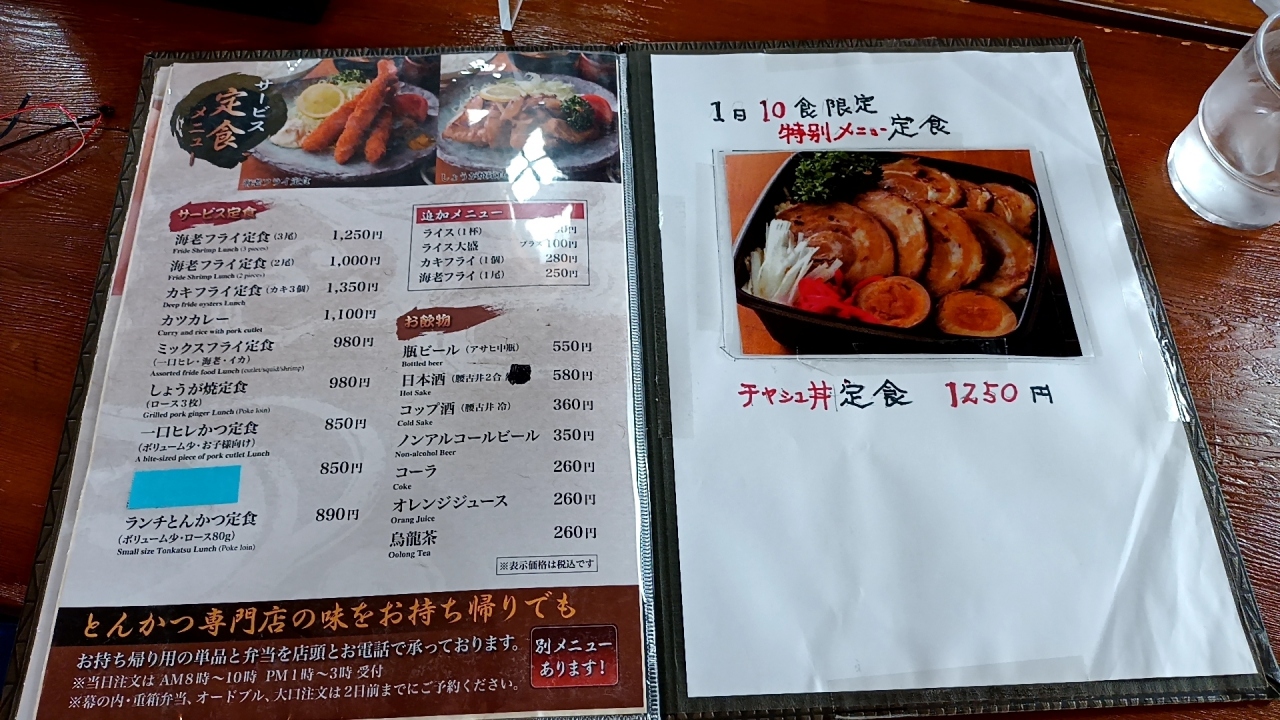 サービス
定食
メニュー
海老フライ定食
サービス定食
海老フライ定食(3尾) 1,250円
Fride Shrimp Lunch (3 pieces)
海老フライ定食(2尾) 1,000円
Fride Shrimp Lunch (2 pieces)
カキフライ定食(カキ3個) 1,350円
Deep fride oysters Lunch
カツカレー 1,100円
Curry and rice with pork cutlet
ミックスフライ定食 980円
(一口ヒレ・海老・イカ)
Assorted fride food Lunch (cutlet/squid/shrimp)
しょうが焼定食 980円
(ロース3枚)
Grilled pork ginger Lunch (Poke loin)
一口ヒレかつ定食 850円
(ボリューム少・お子様向け)
A bite-sized piece of pork cutlet Lunch
850円
ランチとんかつ定食 890円
(ボリューム少・ロース80g)
Small size Tonkatsu Lunch (Poke loin)
追加メニュー
ライス(1杯)
ライス大盛 プラス 100円
カキフライ(1個) 280円
海老フライ(1尾) 250円
お飲物
瓶ビール(アサヒ中瓶) 550円
Bottled beer
日本酒(腰古井2合 580円
Hot Sake
コップ酒(腰古井 冷) 360円
Cold Sake
ノンアルコールビール 350円
Non-alcohol Beer
コーラ 260円
Coke
オレンジジュース 260円
Orang Juice
烏龍茶 260円
Oolong Tea
※表示価格は税込です
とんかつ専門店の味をお持ち帰りでも
お持ち帰り用の単品と弁当を店頭とお電話で承っております。
※当日注文は AM8時～10時 PM1時～3時 受付
※幕の内・重箱弁当、オードブル、大口注文は2日前までにご予約ください。
別メニュー
あります!
1日10食限定
特別メニュー定食
チャシュ丼定食 1250円